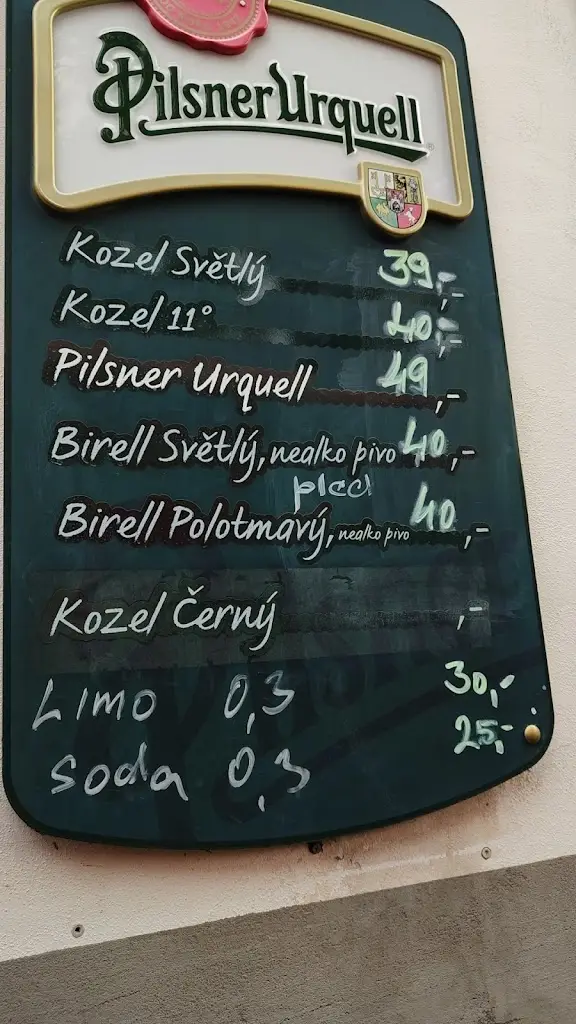 Pilsner Urquell
Kozel Světlý 39,-
Kozel 11° 40,-
Pilsner Urquell 49,-
Birell Světlý, nealko pivo 40,-
plech
Birell Polotmavý, nealko pivo 40,-
Kozel Černý ,-
LIMO 0,3 30,-
soda 0,3 25,-